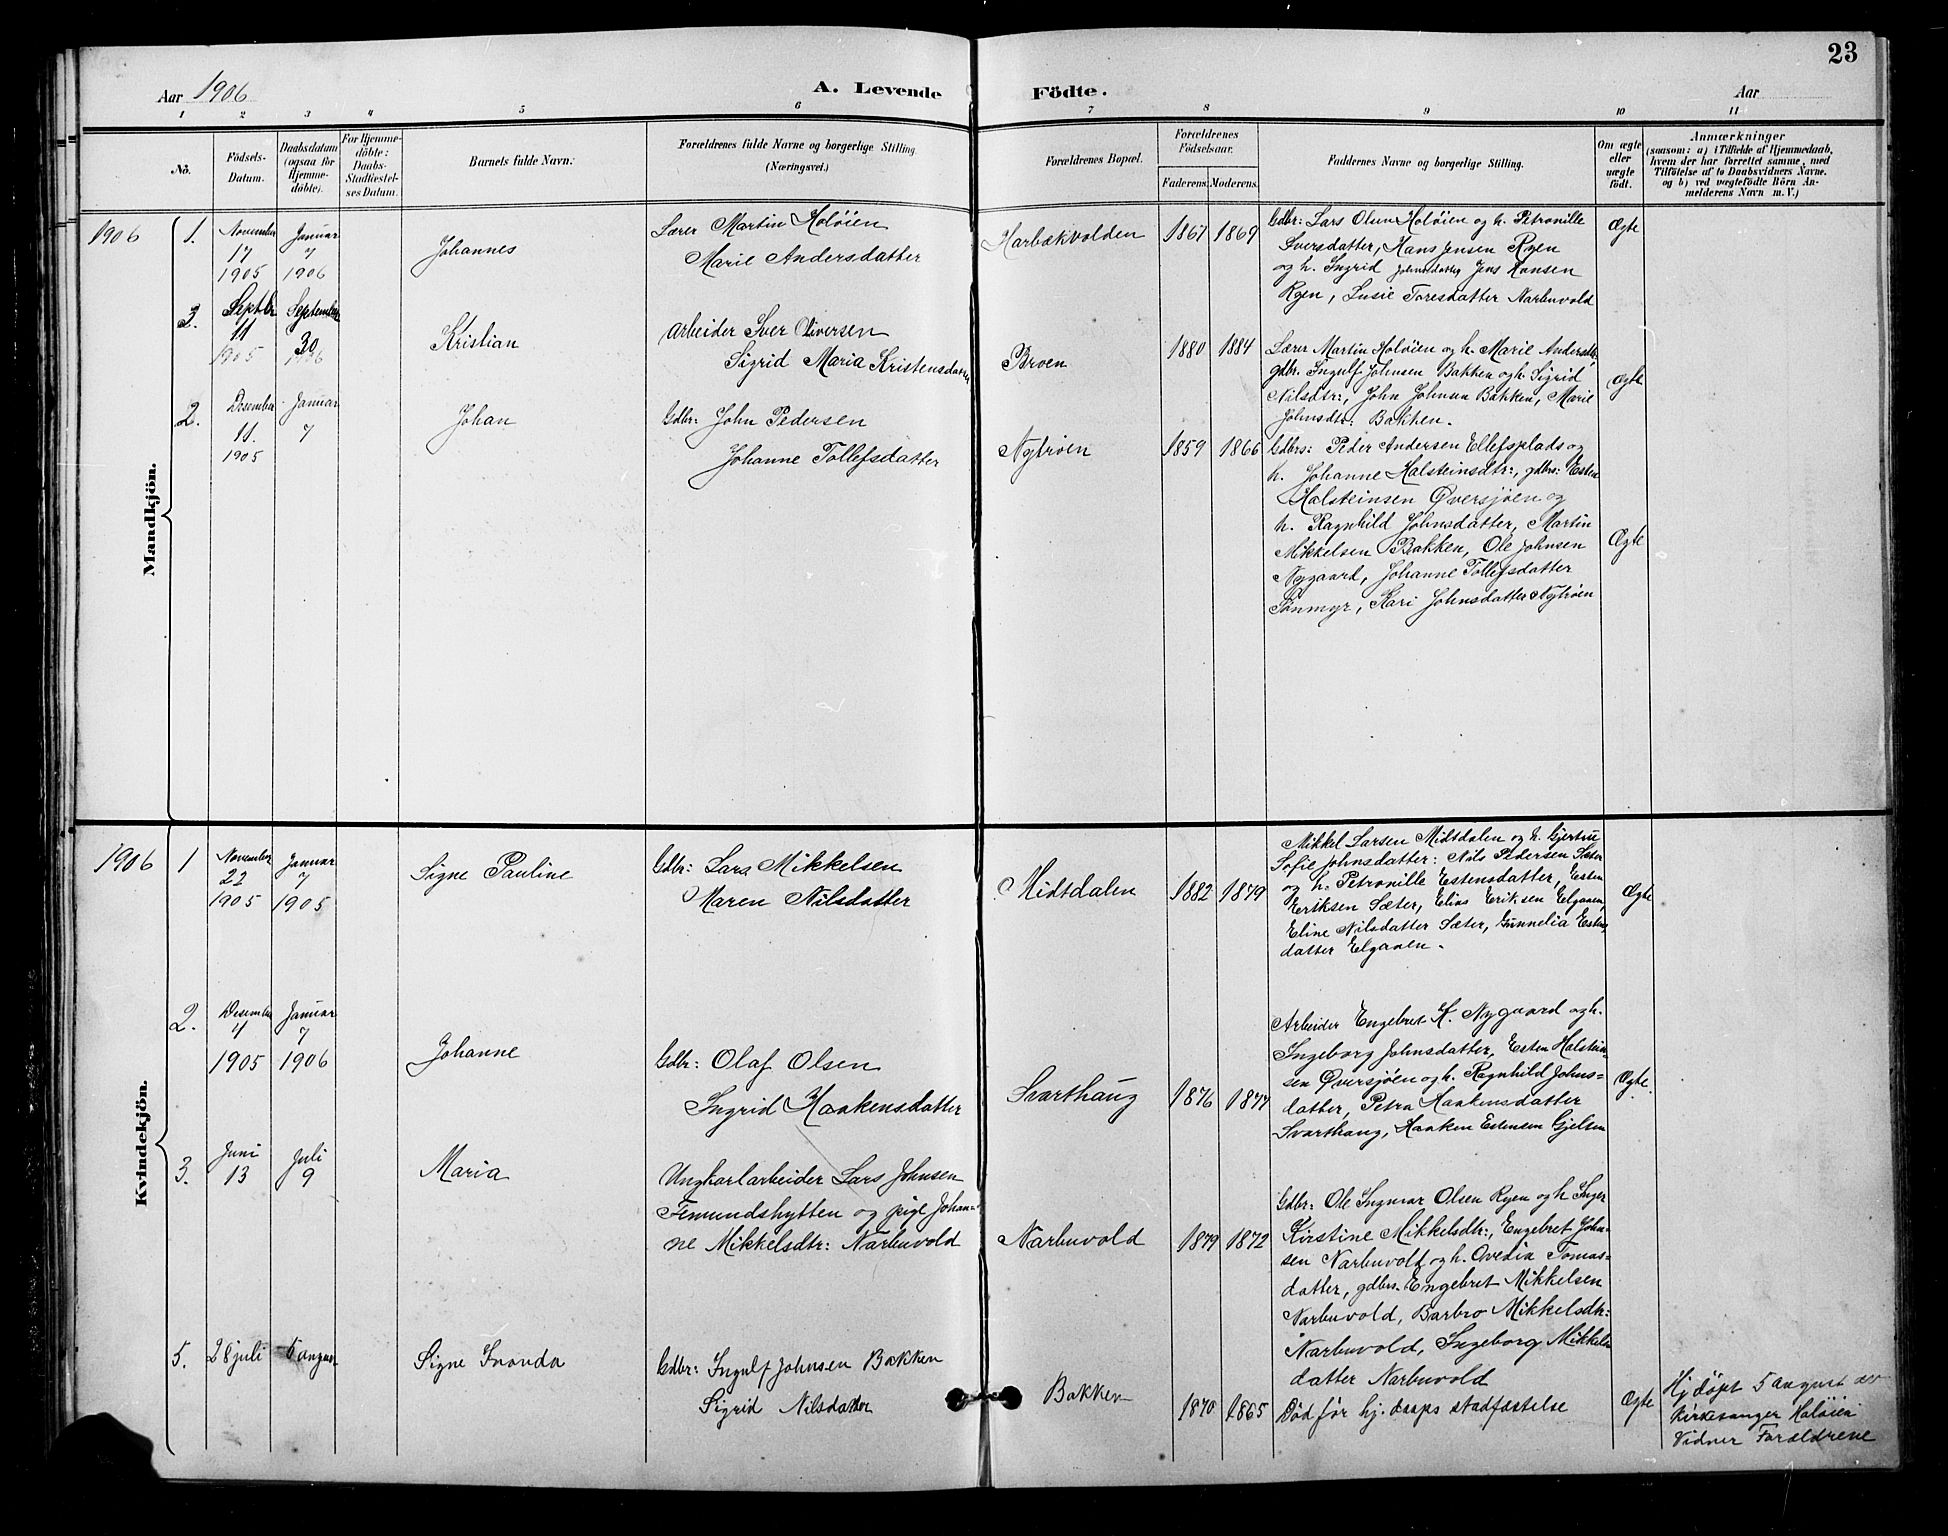 23
Aar 1906 A. Levende Födte. Aar
1 2 3 4 5 6 7 8 9 10 11
No.
Födsels-Datum.
Daabsdatum (ogsaa for Hjemme-döbte).
For Hjemme-döbte: Daabs-Stadfæstelses Datum.
Barnets fulde Navn.
Forældrenes fulde Navne og borgerlige Stilling. (Næringsvei.)
Forældrenes Bopæl.
Forældrenes Födselsaar.
Faderens. Moderens.
Faddernes Navne og borgerlige Stilling.
Om ægte eller uægte födt.
Anmærkninger
(saasom: a) i Tilfælde af Hjemmedaab,
hvem der har forrettet samme, med
Tilföielse af to Daabsvidners Navne.
og b) ved uægtefödte Börn An-
melderens Navn m. V.)
Mandkjön.
1906 1. November 17 1905
Januar 7 1906
Johannes
Lærer Martin Holøien
Marie Andersdatter
Harbækvolden 1867 1869
Gdbr: Lars Olsen Holøien og h. Petronille
Sversdatter, Hans Jensen Ryen
og h. Ingrid Johnsdatter Jens Hansen
Ryen, Lusie Toresdatter Narbuvold
Ægte
3. Septbr 11 1905
September 30 1906
Kristian
Arbeider Sver Oliversen
Sigrid Maria Kristensdatter
Broen 1880 1884
Lærer Martin Holøien og h. Marie Andersdtr,
gdbr. Ingulf Johnsen Bakken og h. Sigrid
Nilsdtr:, John Johnsen Bakken, Marie
Johnsdtr: Bakken.
Ægte
2. Desember 11. 1905
Januar 7
Johan
Gdbr: John Pedersen
Johanne Tollefsdatter
Nytrøen 1859 1866
Gdbrs: Peder Andersen Ellefsplads og
h. Johanne Halsteinsdtr:, gdbrs: Esten
Halsteinsen Øversjøen og
h. Ragnhild Johnsdatter, Martin
Mikkelsen Bakken, Ole Johnsen
Nygaard, Johanne Tollefsdatter
Tønmyr, Kari Johnsdatter Nytrøen
Ægte
Kvindekjön.
1906 1 November 22 1905
Januar 7 1905
Signe Pauline
Gdbr: Lars Mikkelsen
Maren Nilsdatter
Midtdalen 1882 1879
Mikkel Larsen Midtdalen og h. Gjertru
Sofie Johnsdatter: Nils Pedersen Sæter
og h. Petronille Estensdatter, Esten
Eriksen Sæter, Elias Eriksen Elgaaen,
Eline Nilsdatter Sæter, Gunnelia Estens
datter Elgaaen.
Ægte
2. Desember 4 1905
Januar 7 1906
Johanne
Gdbr: Olaf Olsen
Ingrid Haakensdatter
Svarthaug 1876 1877
Arbeider Engebret K. Nygaard og h.
Ingeborg Johnsdatter, Esten Halstein
sen Øversjøen og h. Ragnhild Johns=
datter, Petra Haakensdatter
Svarthaug, Haaken Estensen Gjelten
Ægte.
3. Juni 13
Juli 9
Maria
Ungkarlarbeider Lars Johnsen
Femundshytten og pige Johan=
ne Mikkelsdtr: Narbuvold
Narbuvold 1879 1872
Gdbr: Ole Ingmar Olsen Ryen og h Inger
Kirstine Mikkelsdtr:, Engebret John=
sen Narbuvold og h. Ovedia Tomas=
datter, gdbrs. Engebret Mikkelsen
Narbuvold, Barbro Mikkelsdtr:
Narbuvold, Ingeborg Mikkels
datter Narbuvold
5. 28 juli
5 august
Signe Inanda
Gdbr: Ingulf Johnsen Bakken
Sigrid Nilsdatter
Bakken 1870 1865
Død før hj. daaps stadfæstelse
Ægte
Hj døpt 5 august av
kirkesanger Holøien
Vidner Forældrene